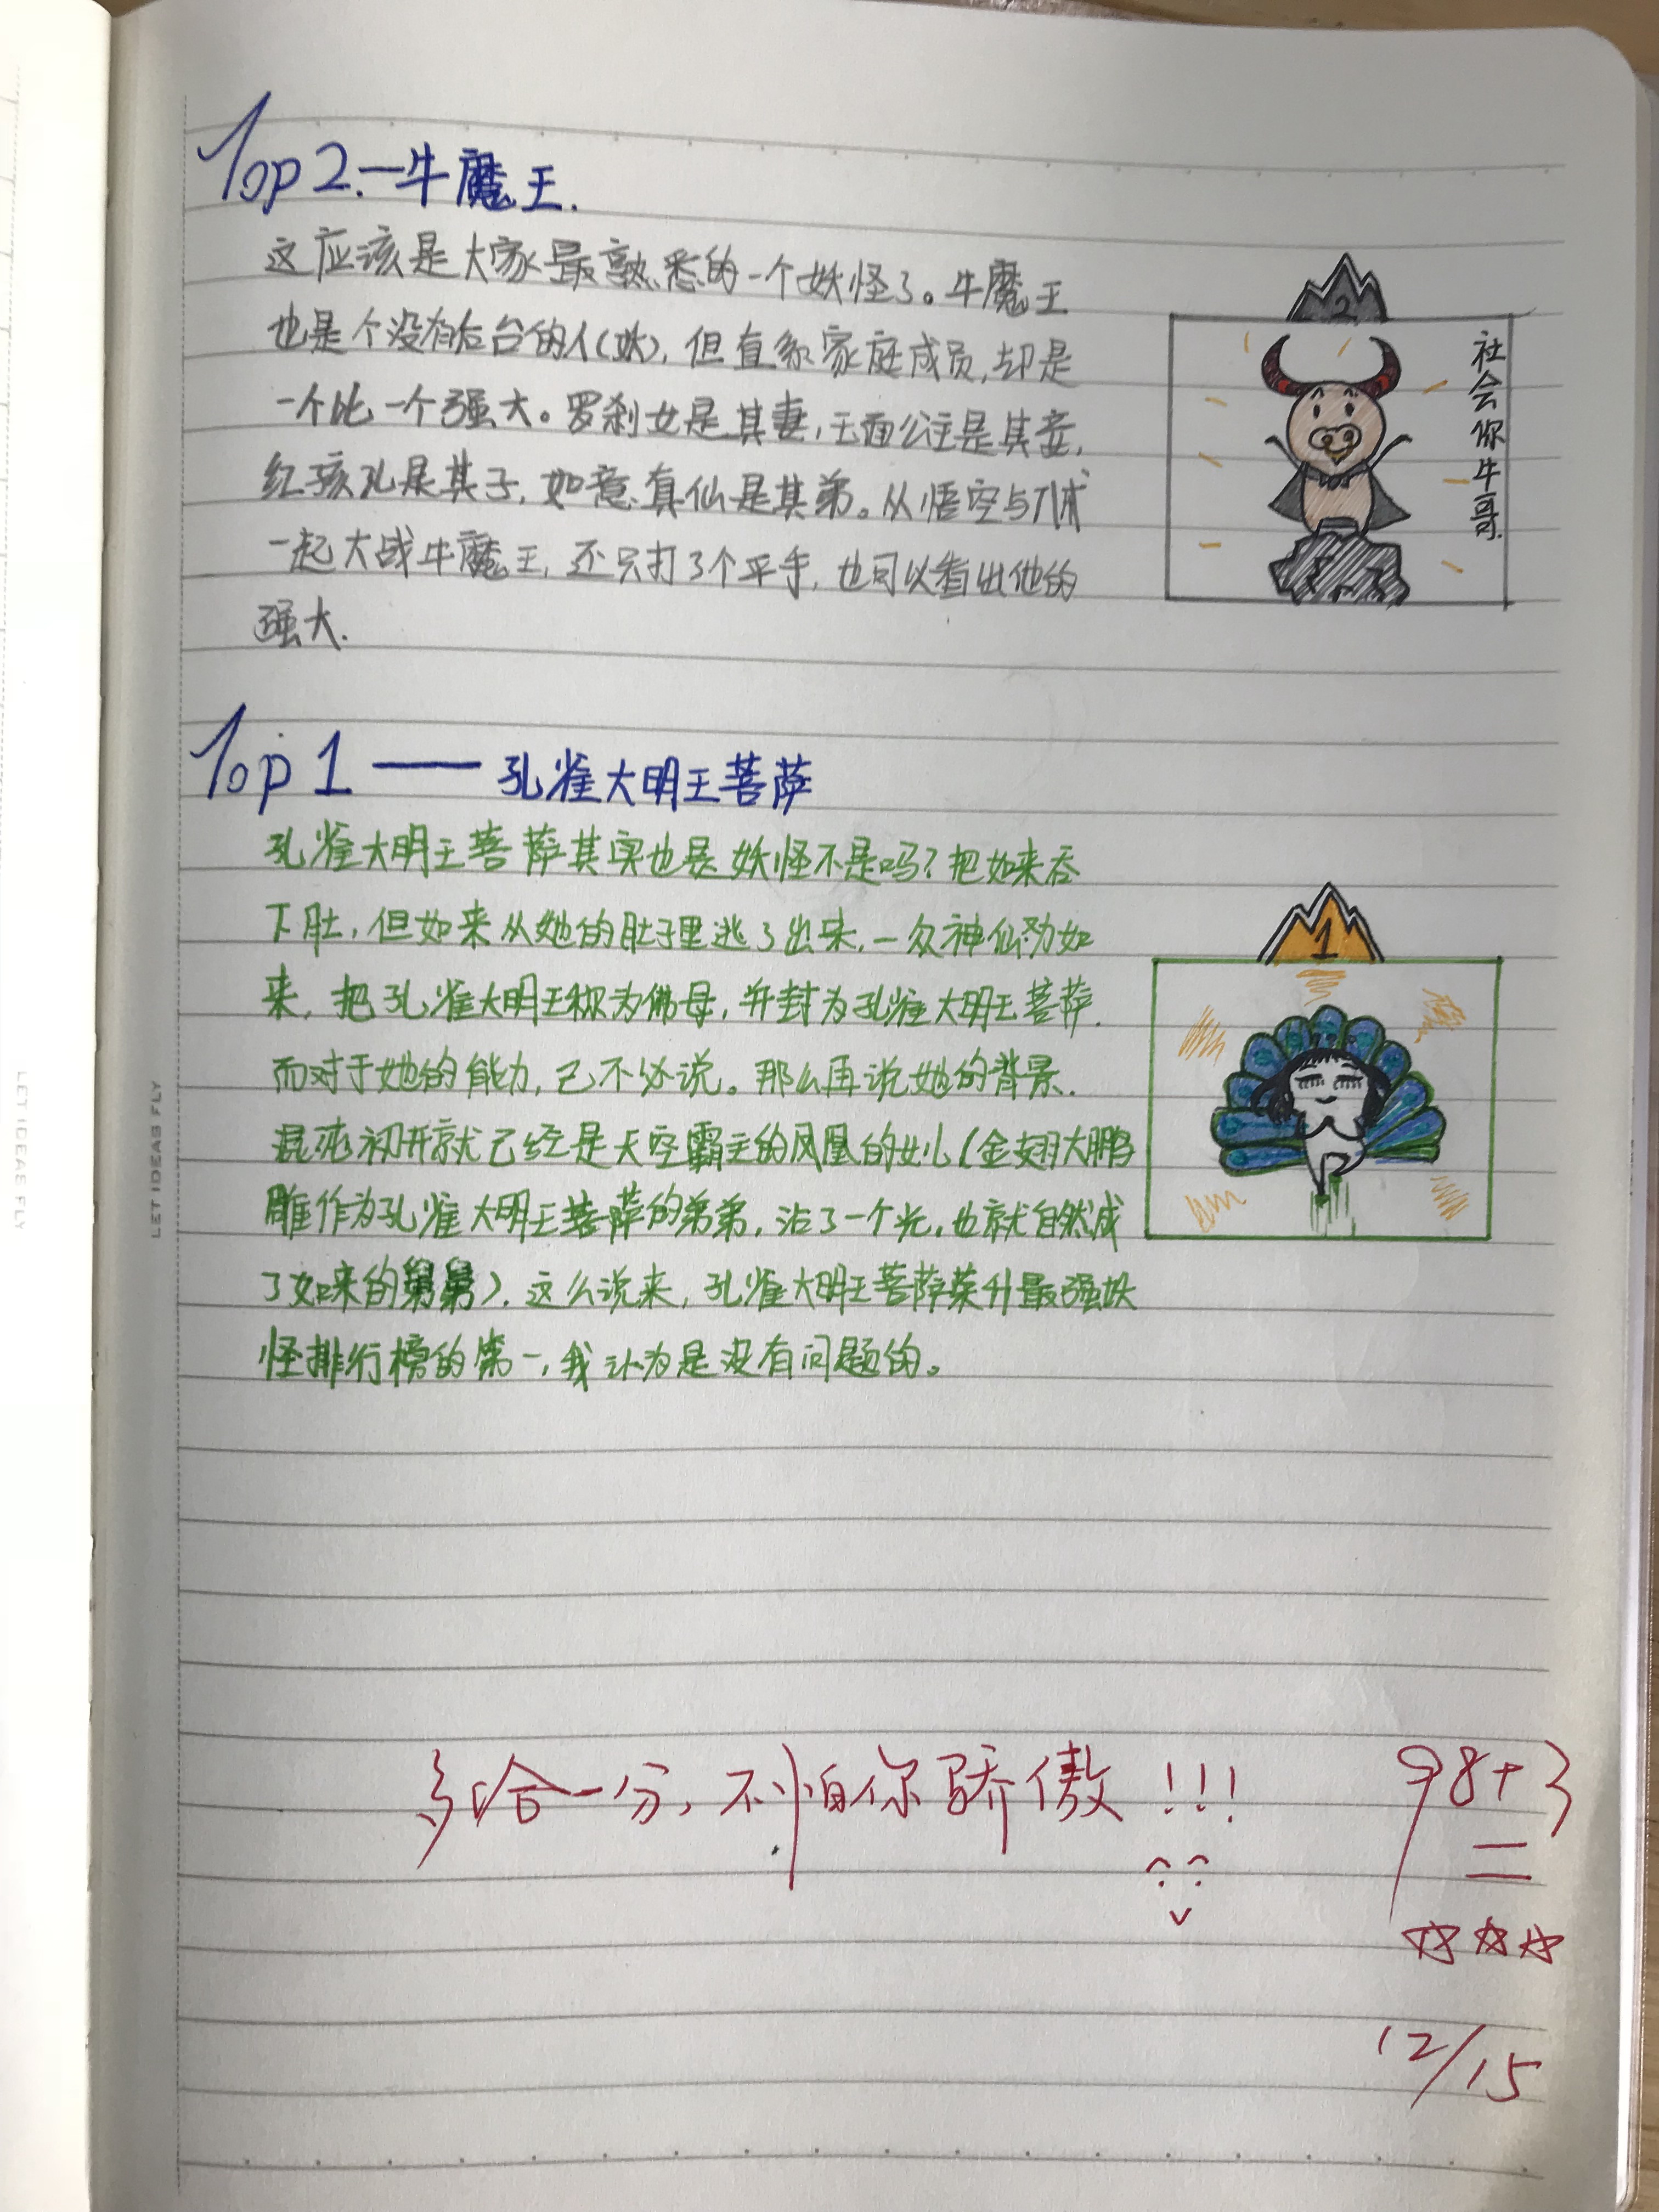 Top 2.一牛魔王.
这应该是大家最熟悉的一个妖怪了。牛魔王
也是个没有后台的人(妖),但直系家庭成员,却是
一个比一个强大。罗刹女是其妻,玉面公主是其妾,
红孩儿是其子,如意真仙是其弟。从悟空与八戒
一起大战牛魔王,还只打了个平手,也可以看出他的
强大.
2
社会你牛哥.
Top 1 —— 孔雀大明王菩萨
孔雀大明王菩萨其实也是妖怪不是吗?把如来吞
下肚,但如来从她的肚子里逃了出来,一众神仙劝如
来,把孔雀大明王称为佛母,并封为孔雀大明王菩萨.
而对于她的能力,已不必说。那么再说她的背景.
混沌初开就已经是天空霸主的凤凰的女儿(金翅大鹏
雕作为孔雀大明王菩萨的弟弟,沾了一个光,也就自然成
了如来的舅舅).这么说来,孔雀大明王菩萨荣升最强妖
怪排行榜的第一,我认为是没有问题的。
1
多给一分,不怕你骄傲!!!
98+3
12/15
LET IDEAS FLY
LET IDEAS FLY